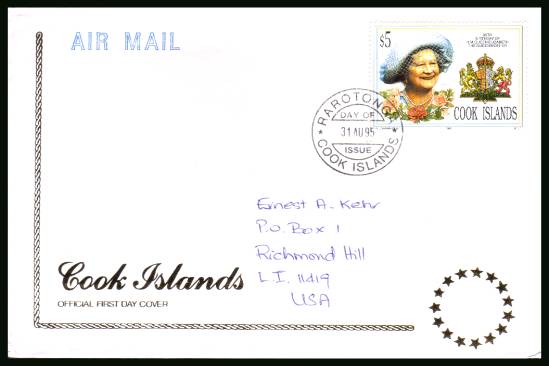 AIR MAIL
$5
95TH
BIRTHDAY OF
H.M. QUEEN ELIZABETH
THE QUEEN MOTHER
COOK ISLANDS
RAROTONGA
DAY OF
31 AU 95
ISSUE
COOK ISLANDS
Ernest A. Kehr
P.O. Box 1
Richmond Hill
L.I. 11419
USA
Cook Islands
OFFICIAL FIRST DAY COVER